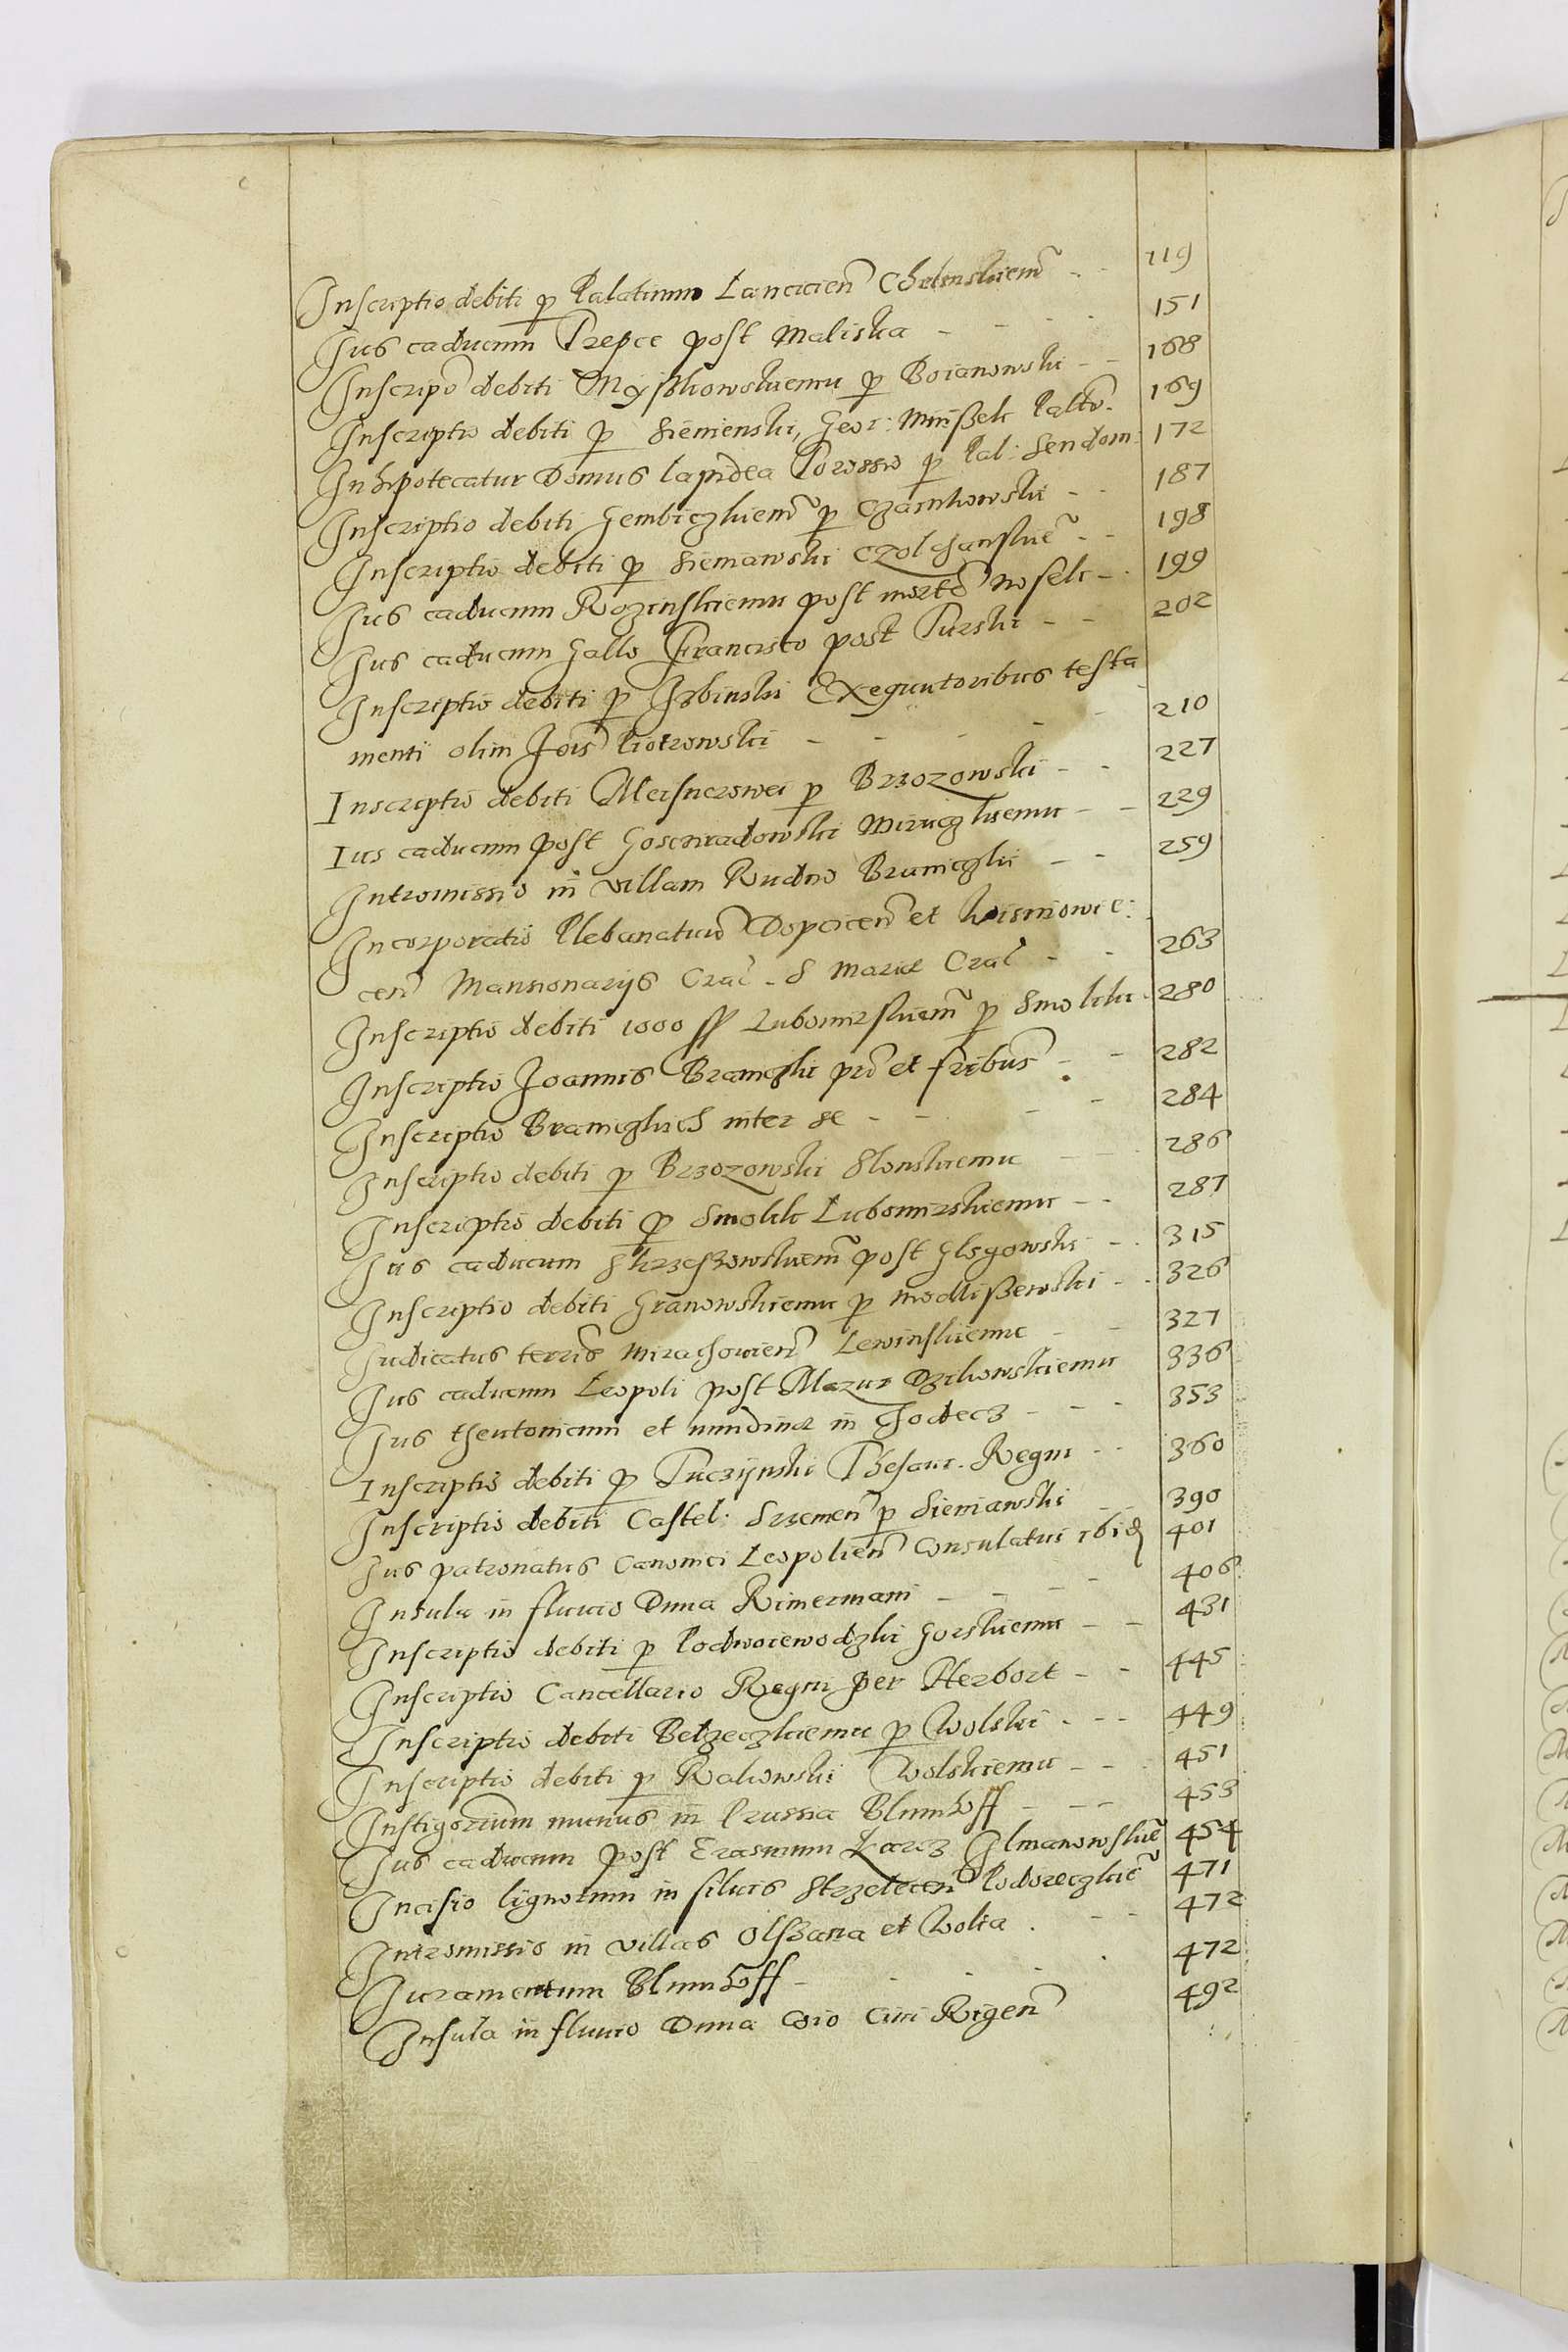 Inscriptio debiti p Palatinum Lanciciens Chelmskiemu - - 119
Jus caducum Trepce post Maliska - - - - 151
Inscripō debiti Myszkowskiemu p Boianowski - - 168
Inscriptio debiti p Sienienski, Geor: Mnißek Palto. 169
Inhipotecatur Domus lapidea Torosso p Pal: Sendom: 172
Inscriptio debiti Gembiczkiemu p Czarnkowski - - 187
Inscriptio debiti p Sieniawski Czolchanskie - - 198
Jus caducum Rozinskiemu post morte Nosek - - 199
Jus caducum Gallo Francisco post Turski - - 202
Inscriptio debiti p Izbinski Exequutoribus testa
menti olim Jois Piotrowski - - - - - 210
Inscriptio debiti Meisnerowei p Brzozowski - - 227
Ius caducum post Gosciradowski Miruczkiemu - - 229
Intromissio in villam Rudno Branieczki - - 259
Incorporatio Plebanatuu Dopcicen et Wisniowie:
cen Mansionarijs Crac. S Mariae Crac - - 263
Inscriptio debiti 1000 ff Lubomirskiem p Smolik 280
Inscriptio Joannis Braniczki pro et fribus - - 282
Inscriptio Branieczkich inter se - - - - 284
Inscriptio debiti p Brzozowski Slonskiemu - - - 286
Inscriptio debiti p Smolik Lubomirskiemu - - 287
Jus caducum Skrzeszowskiem post Glogowski - - 315
Inscriptio debiti Granowskiemu p modlißewski - - 326
Judicatus terris Mirachowien Lewinskiemu - - 327
Jus caducum Leopoli post Mazur Dzikowskiemu 336
Jus theutonicum et nundinae in Chodecz - - - 353
Inscriptio debiti p Tuczijnski Thesaur. Regni - - 360
Inscriptio debiti Castel: Srzemen p Sieniawski - - 390
Jus patronatus Canonici Leopolien Consulatui ibid 401
Insula in fluuio Duna Rimermani - - - - 406
Inscriptio debiti p Podwoiewodzki Gorskiemu - - 431
Inscriptio Cancellario Regni per Herbort - - 445
Inscriptio debiti Belzeczkiemu p Wolski - - - 449
Inscriptio debiti p Rakowski Wolskiemu - - - 451
Instigorium munus in Prussia Blumhoff - - - 453
Jus caducum post Erasmum Karcz Glmanowskie 454
Incisio lignorum in siluis Strzelecen Podoreczkie 471
Intromissio in villas Olszana et Wolia . - - 472
Juramentum Blumhoff - - - . 472
Insula in fluuio Duna Coio Ciui Rigen 492